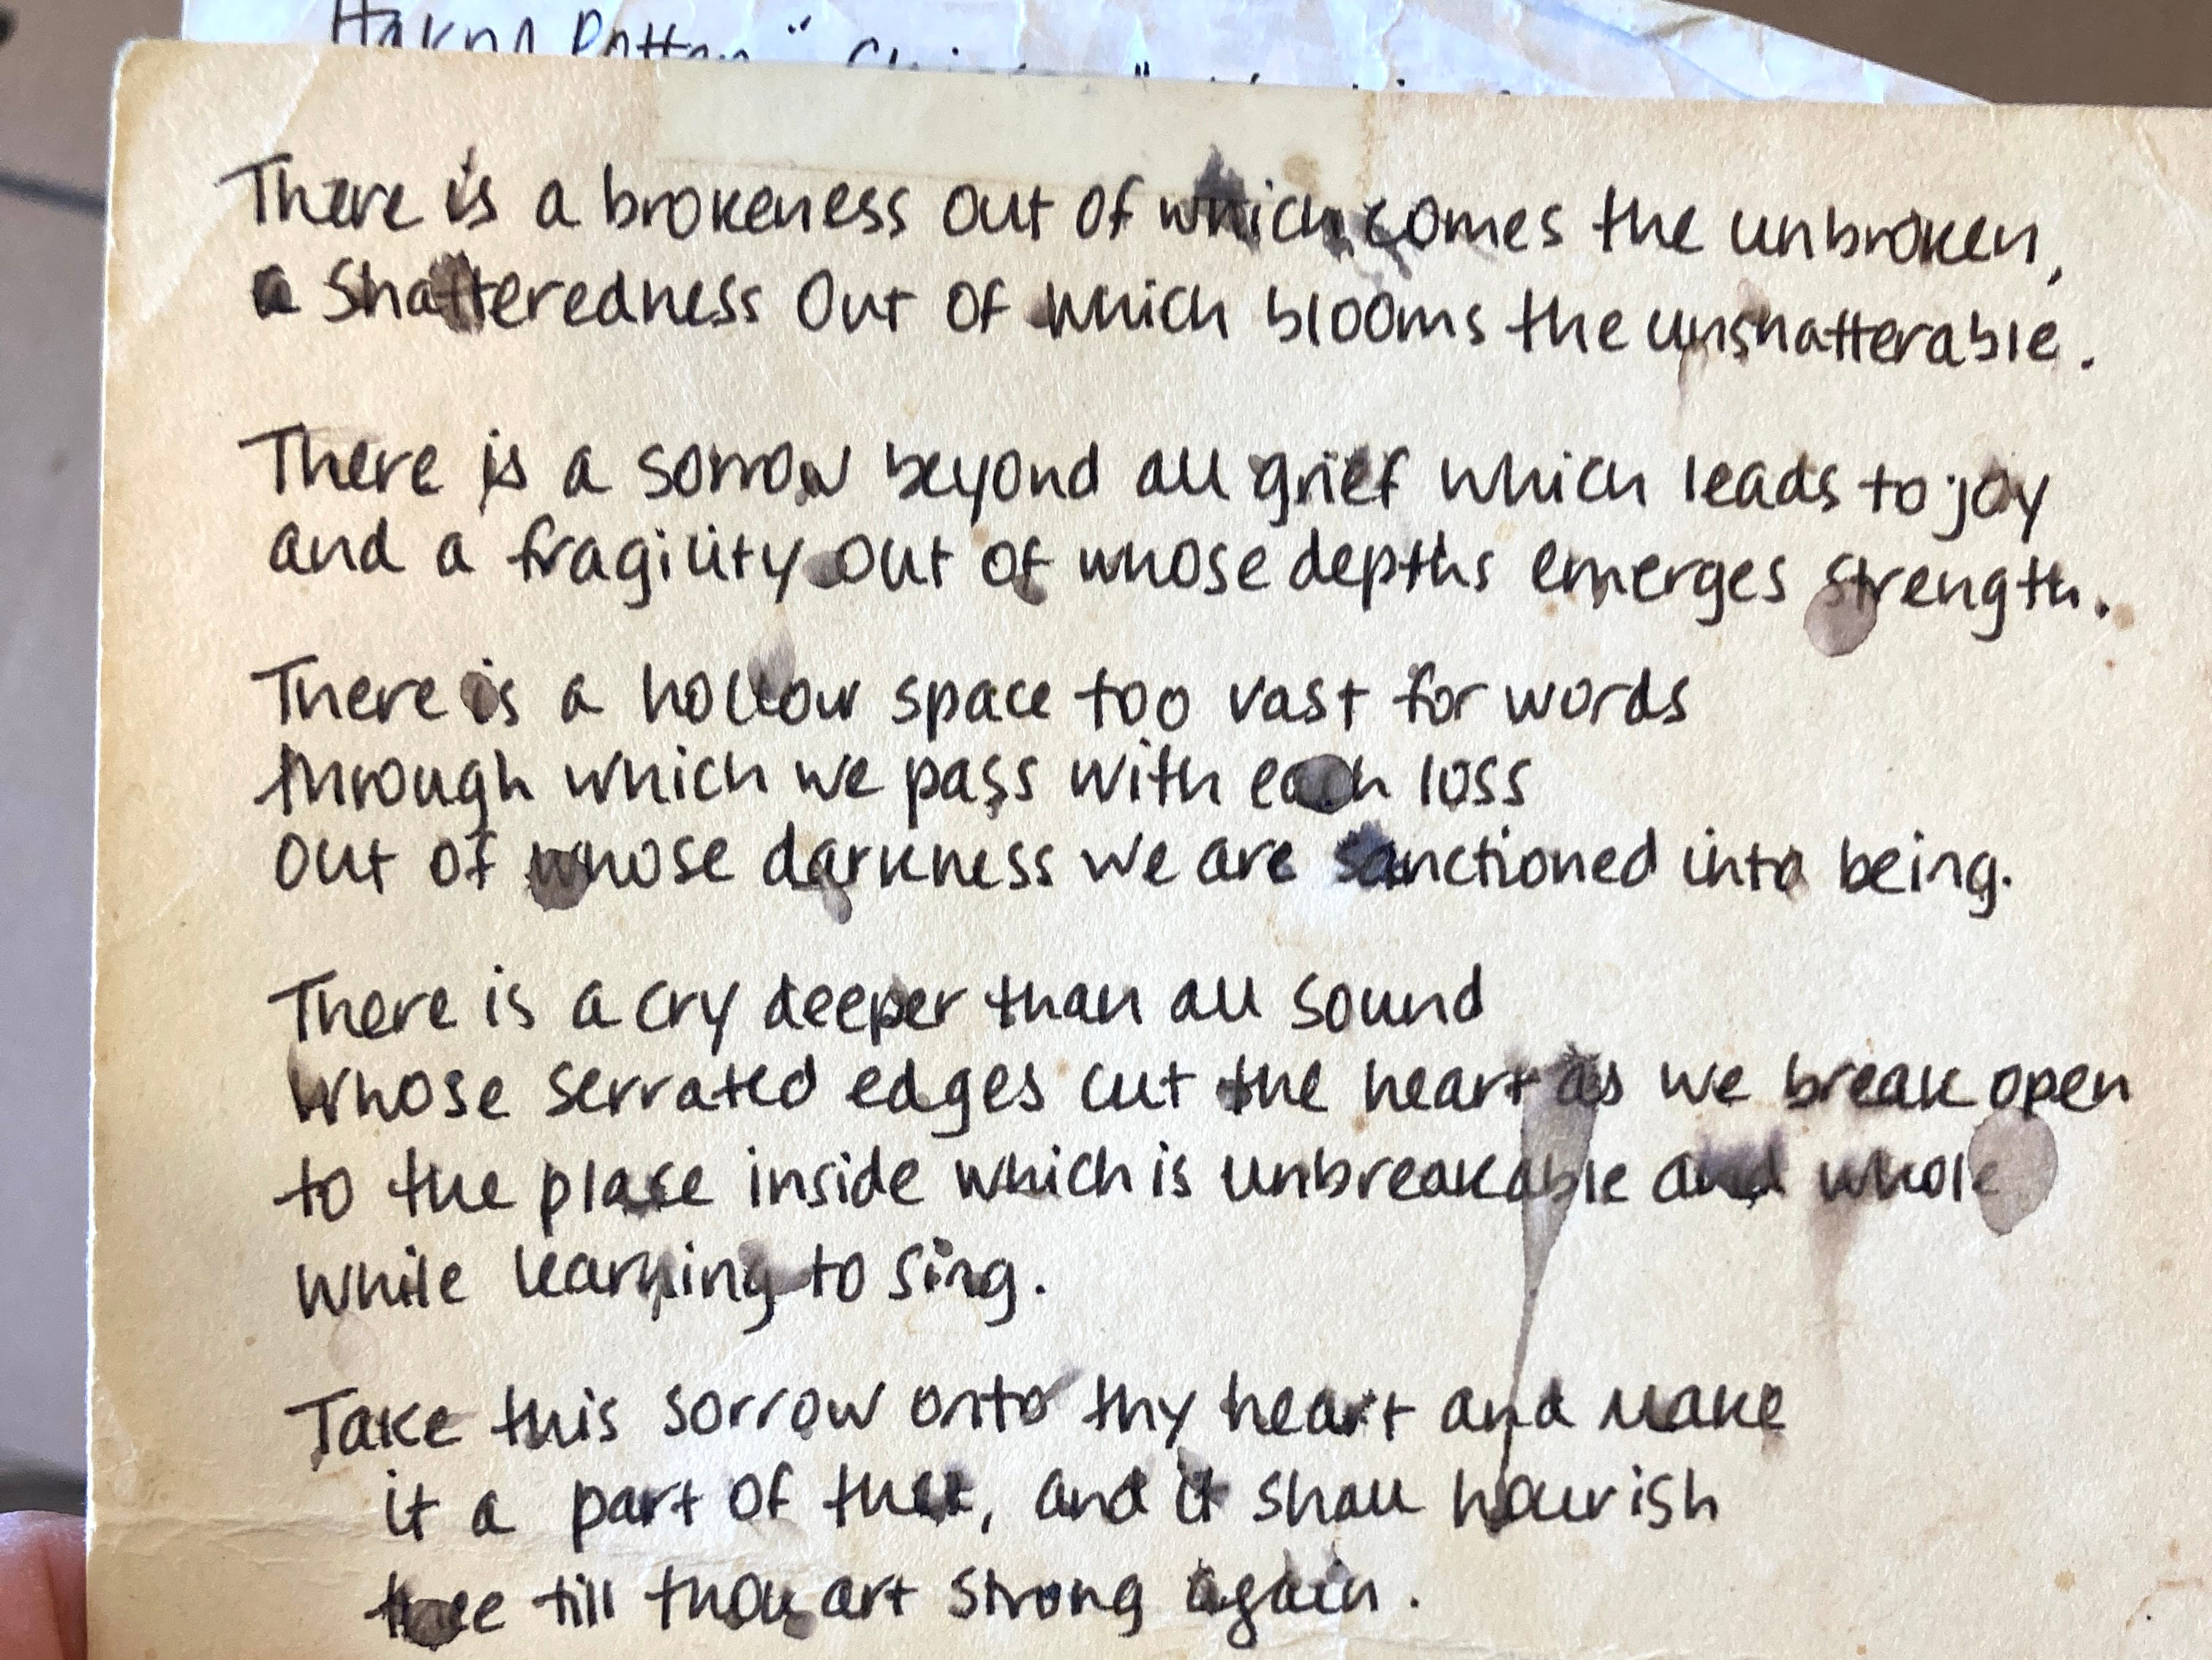 There is a brokeness out of which comes the unbroken,
a shatteredness out of which blooms the unshatterable.
There is a sorrow beyond all grief which leads to joy
and a fragility out of whose depths emerges strength.
There is a hollow space too vast for words
through which we pass with each loss
out of whose darkness we are sanctioned into being.
There is a cry deeper than all sound
whose serrated edges cut the heart as we break open
to the place inside which is unbreakable and whole
while learning to sing.
Take this sorrow onto thy heart and make
it a part of thee, and it shall nourish
thee till thou art strong again.